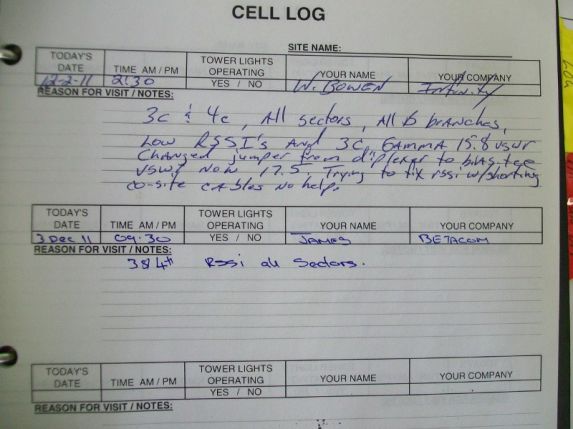 CELL LOG
SITE NAME:
TODAY'S DATE TIME AM / PM TOWER LIGHTS OPERATING YES / NO YOUR NAME YOUR COMPANY
12-2-11 21:30 W. BOWEN Infinity
REASON FOR VISIT / NOTES:
3c & 4c, All sectors, All B branches,
Low RSSI's And 3C, GAMMA 15.8 VSWR
Changed jumper from diplexer to bias-tee
VSWR Now 17.5. Trying to fix rssi w/shorting
co-site cables No help.
TODAY'S DATE TIME AM / PM TOWER LIGHTS OPERATING YES / NO YOUR NAME YOUR COMPANY
3 Dec 11 09:30 JAMES BETACOM
REASON FOR VISIT / NOTES:
Rssi all Sectors.
TODAY'S DATE TIME AM / PM TOWER LIGHTS OPERATING YES / NO YOUR NAME YOUR COMPANY
REASON FOR VISIT / NOTES: